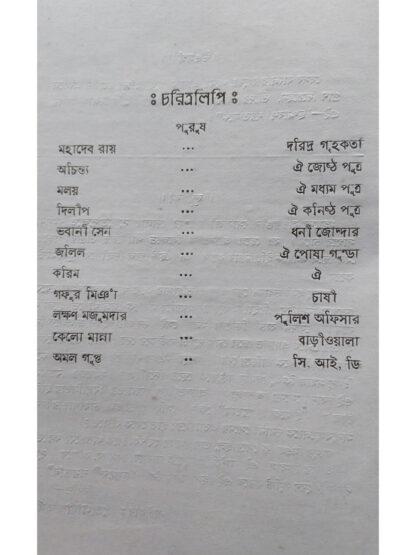 ঃ চরিত্রলিপি ঃ
পুরুষ
মহাদেব রায় ... দরিদ্র গৃহকর্তা
অচিন্ত্য ... ঐ জ্যেষ্ঠ পুত্র
মলয় ... ঐ মধ্যম পুত্র
দিলীপ ... ঐ কনিষ্ঠ পুত্র
ভবানী সেন ... ধনী জোদ্দার
জলিল ... ঐ পোষা গুন্ডা
করিম ... ঐ
গফুর মিঞা ... চাষী
লক্ষণ মজুমদার ... পুলিশ অফিসার
কেলো মান্না ... বাড়ীওয়ালা
অমল গুপ্ত .. সি, আই, ডি